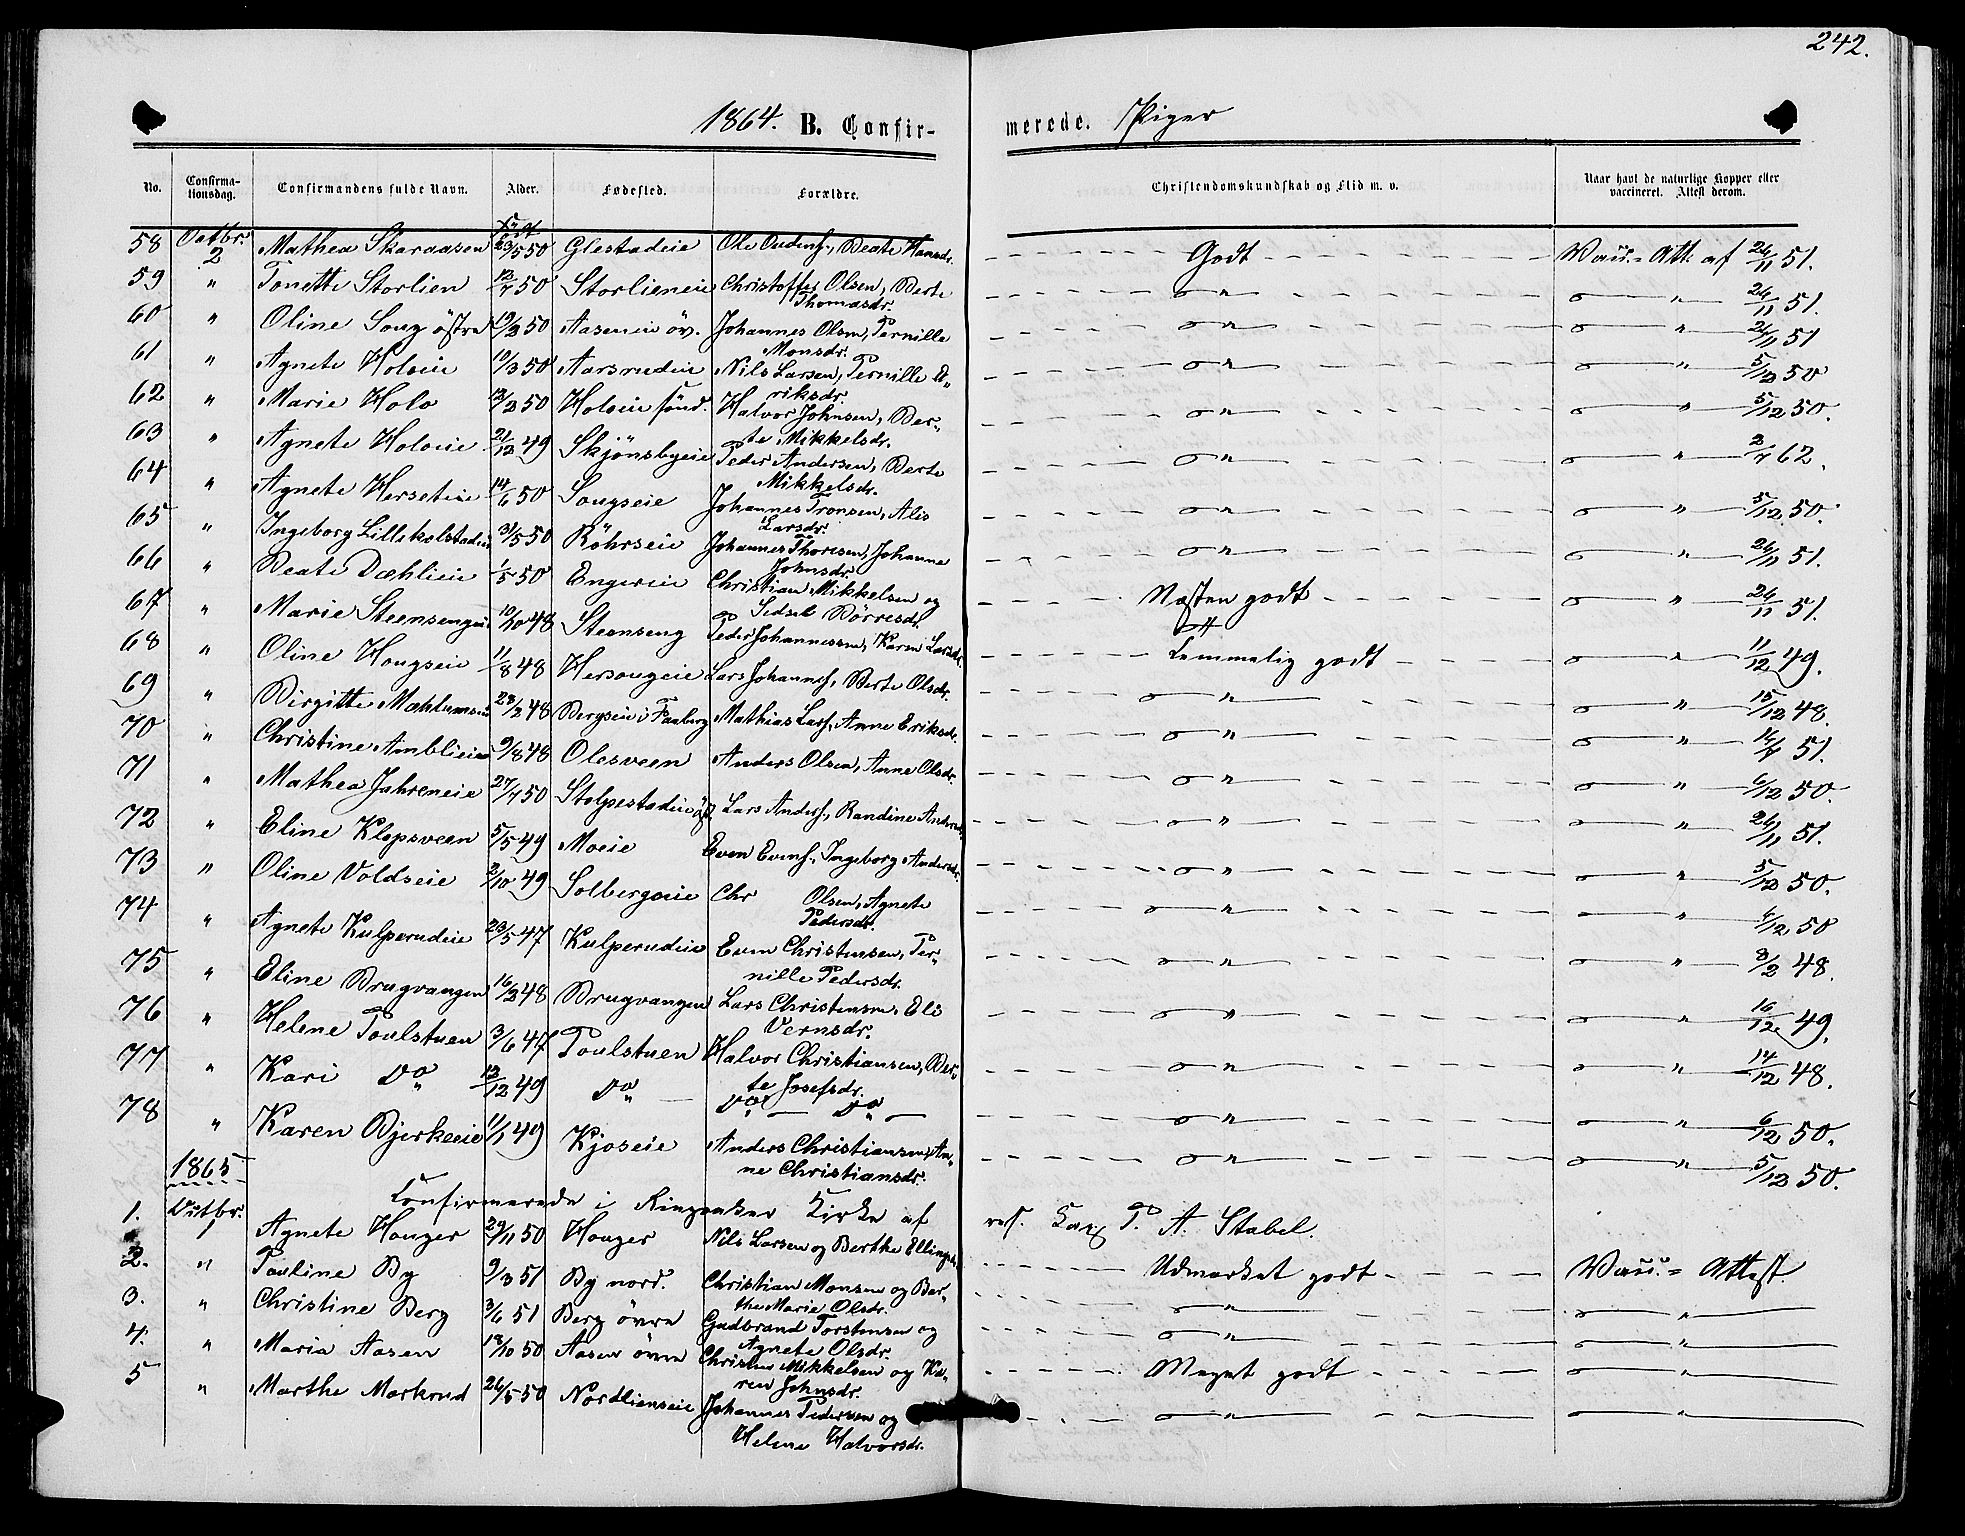 242.
1864. B. Confir- merede. Piger
No. Confirma-tionsdag. Confirmandens fulde Navn. Alder. Fødested. Forældre. Christendomskundskab og Flid m. v. Naar havt de naturlige Kopper eller vaccineret. Attest derom.
født
58 Octbr. 2 Mathea Skaraasen 23/5 50 Glestadeie Ole Oudens., Beate Hansdr. Godt Vacc.= Att. af 24/11 51.
59 " Tonette Storlien 12/7 50 Storlieneie Christoffer Olsen, Berte Thomasdr. " " 24/11 51.
60 " Oline Soug östre 19/2 50 Aaseneie öv. Johannes Olsen, Pernille Monsdr. " " 24/11 51
61 " Agnete Holoeie 10/3 50 Aarsrudeie Nils Larsen, Pernille Eriksdr. " " 5/12 50
62 " Marie Holo 12/2 50 Holoeie sönd. Halvor Johnsen, Berte Mikkelsdr. " " 5/12 50.
63 " Agnete Holoeie 21/12 49 Skjönsbyeie Peder Andersen, Berte Mikkelsdr. " " 2/7 62.
64 " Agnete Herseteie 14/6 50 Sougseie Johannes Tronsen, Alis Larsdr. " " 5/12 50.
65 " Ingeborg Lillekolstadeie 31/5 50 Röhrseie Johannes Thoresen, Johanne Johnsdr. " " 24/11 51.
66 " Beate Dæhlieie 1/5 50 Engereie Christian Mikkelsen og Sidsel Börresdr. Næsten godt " 24/11 51.
67 " Marie Steensengeie 10/10 48 Steenseng Peder Johannessen, Karen Larsdr. Temmelig godt " 11/12 49.
68 " Oline Hougseie 11/8 48 Hersougeie Lars Johannes., Berte Olsdr. " " 15/12 48.
69 " Birgitte Mæhlumseie 28/2 48 Bergseie i Faaberg Mathias Lars., Anne Eriksdr. " " 14/7 51.
70 " Christine Amblieie 9/8 48 Olesveen Anders Olsen, Anne Olsdr. " " 6/12 50.
71 " Mathea Jahreneie 27/7 50 Stolpestadeie öst. Lars Anders., Randine Andersdr. " " 24/11 51.
72 " Eline Klepsveen 5/5 49 Moeie Even Evens., Ingeborg Andersdr. " " 5/12 50.
73 " Oline Voldseie 2/10 49 Solbergseie Chr Olsen, Agnete Pedersdr. " " 6/12 50
74 " Agnete Kulperudeie 23/5 47 Kulperudeie Even Christensen, Pernille Pedersdr. " " 3/2 48.
75 " Eline Brugvangen 16/2 48 Brugvangen Lars Christensen, Elis Vernsdr. " " 16/12 49.
76 " Helene Poulstuen 3/6 47 Poulstuen Halvor Christiansen, Berte Josefsdr. " " 14/12 48.
77 " Kari Do 12/12 49 Do Do Do " " 6/12 50.
78 " Karen Bjerkeeie 11/1 49 Kjoseie Anders Christiansen, Anne Christiansdr. " " 5/12 50.
1865
Confirmerede i Ringsaker Kirke af res. Cap P. A. Stabel.
1. Octbr. 1 Agnete Houger 29/11 50 Houger Nils Larsen og Berthe Ellingsdr. Udmærket godt Vacc.= Attest
2. " Pauline By 9/3 51 By nord. Christian Monsen og Berthe Marie Olsdr. " "
3. " Christine Berg 3/6 51 Berg övre Gudbrand Torstensen og Agnete Olsdr. " "
4. " Maria Aasen 18/10 50 Aasen övre Christen Mikkelsen og Karen Johnsdr. Meget godt "
5 " Marthe Morkrud 26/5 50 Nordlienseie Johannes Pedersen og Helene Halvorsdr. " "